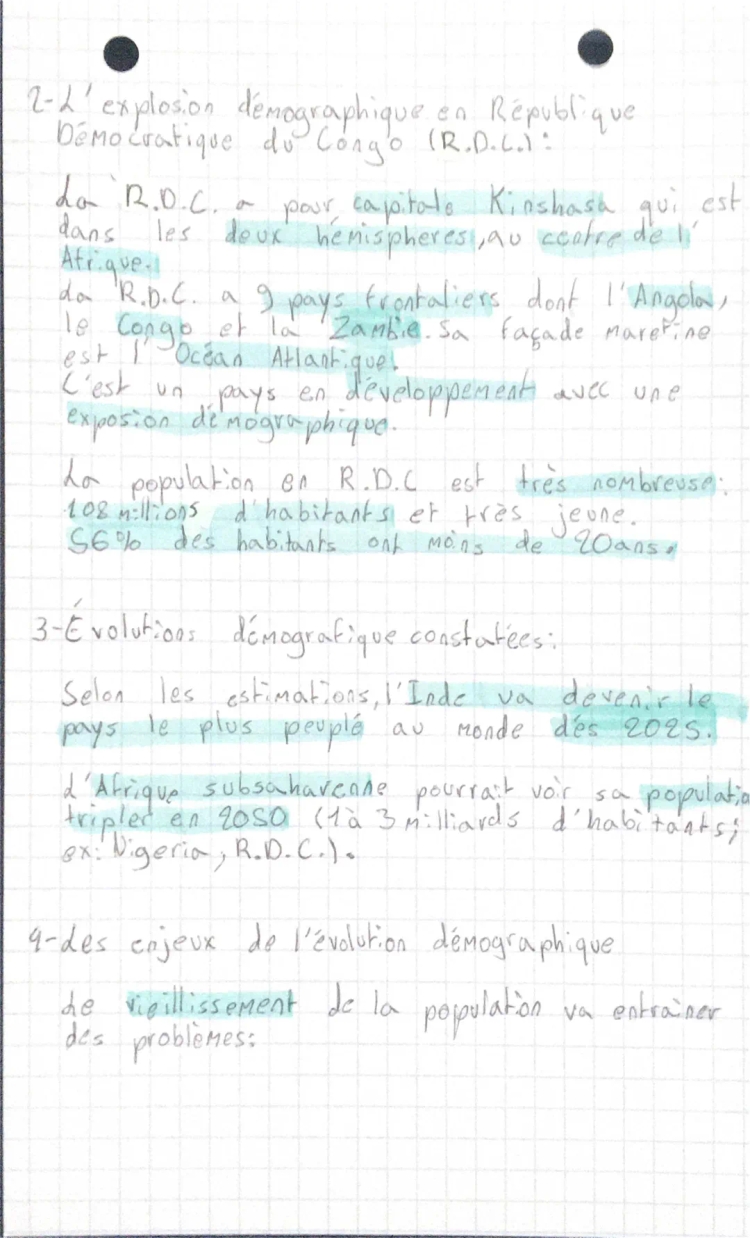 2-L'explosion démographique en République
Démocratique du Congo (R.D.C.):
La R.D.C. a pour capitale Kinshasa qui est
dans les deux hémisphères, au centre de l'
Afrique.
La R.D.C. a 9 pays frontaliers dont l'Angola,
le Congo et la Zambie. Sa façade maretine
est l'Océan Atlantique.
C'est un pays en développement avec une
exposion démographique.
La population en R.D.C est très nombreuse:
108 millions d'habitants et très jeune.
56% des habitants ont moins de 20ans.
3-Évolutions démografique constatées:
Selon les estimations, l'Inde va devenir le
pays le plus peuplé au monde dès 2025.
L'Afrique subsaharenne pourrait voir sa populatio
tripler en 2050 (1 à 3 milliards d'habitants;
ex: Nigeria, R.D.C.).
4-Les enjeux de l'évolution démographique
Le vieillissement de la population va entrainer
des problèmes: